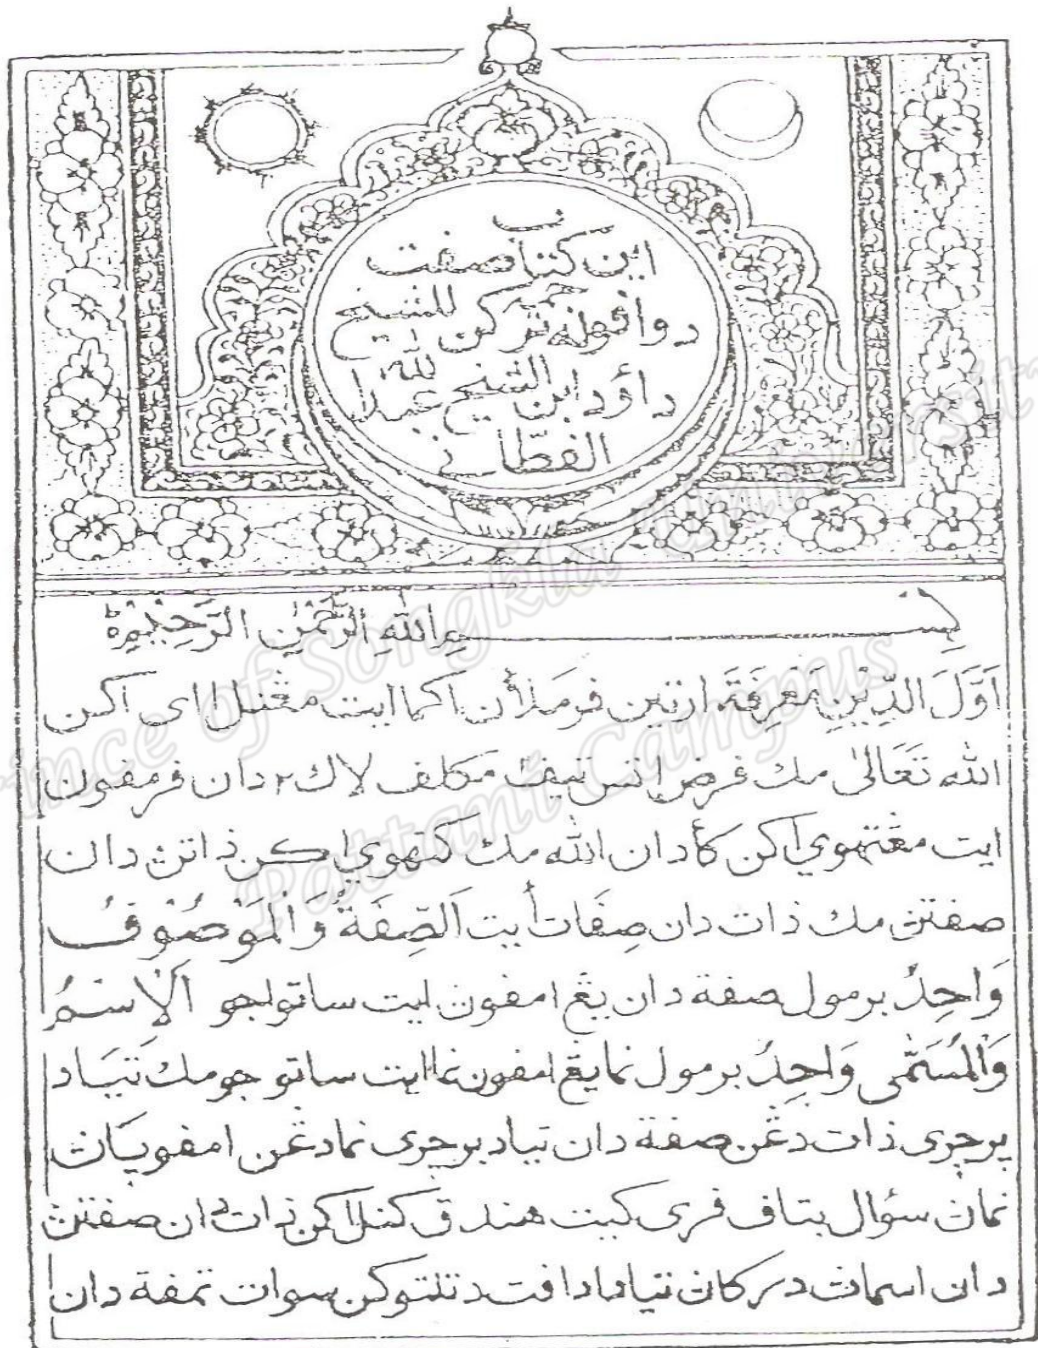 اين كتاب صفت
دوا فوله ترجمهكن للشيخ
داود ابن الشيخ عبد الله
الفطاني
بسم الله الرحمن الرحيم
اَوَّلَ الدِّيْنِ مَعْرِفَةَ ارتين فرملأن اكما ايت مڠنل اى اكن
الله تَعَالىٰ مك فرض اتس تيف٢ مكلف لاك٢ دان فرمفون
ايت مڠتهوي اكن كأدان الله مك كتهوي اكن ذاتڽ دان
صفتڽ مك ذات دان صِفَات أيت اَلصِّفَةُ وَالْمَوْصُوْفُ
وَاحِدٌ برمول صفة دان يڠ امفوڽ ايت ساتو جو اَلْاِسْمُ
وَالْمُسَمَّى وَاحِدٌ برمول نما يڠ امفوڽ نما ايت ساتو جو مك تياد
برچرى ذات دڠن صفة دان تياد برچرى نما دڠن امفوياڽ
نماڽ سؤال بتاف فرى كيت هندق كنل اكن ذات دان صفتڽ
دان اسماڽ دركارن تياد دافت دتنتوكن سوات تمفة دان
Prince of Songkla University
Pattani Campus